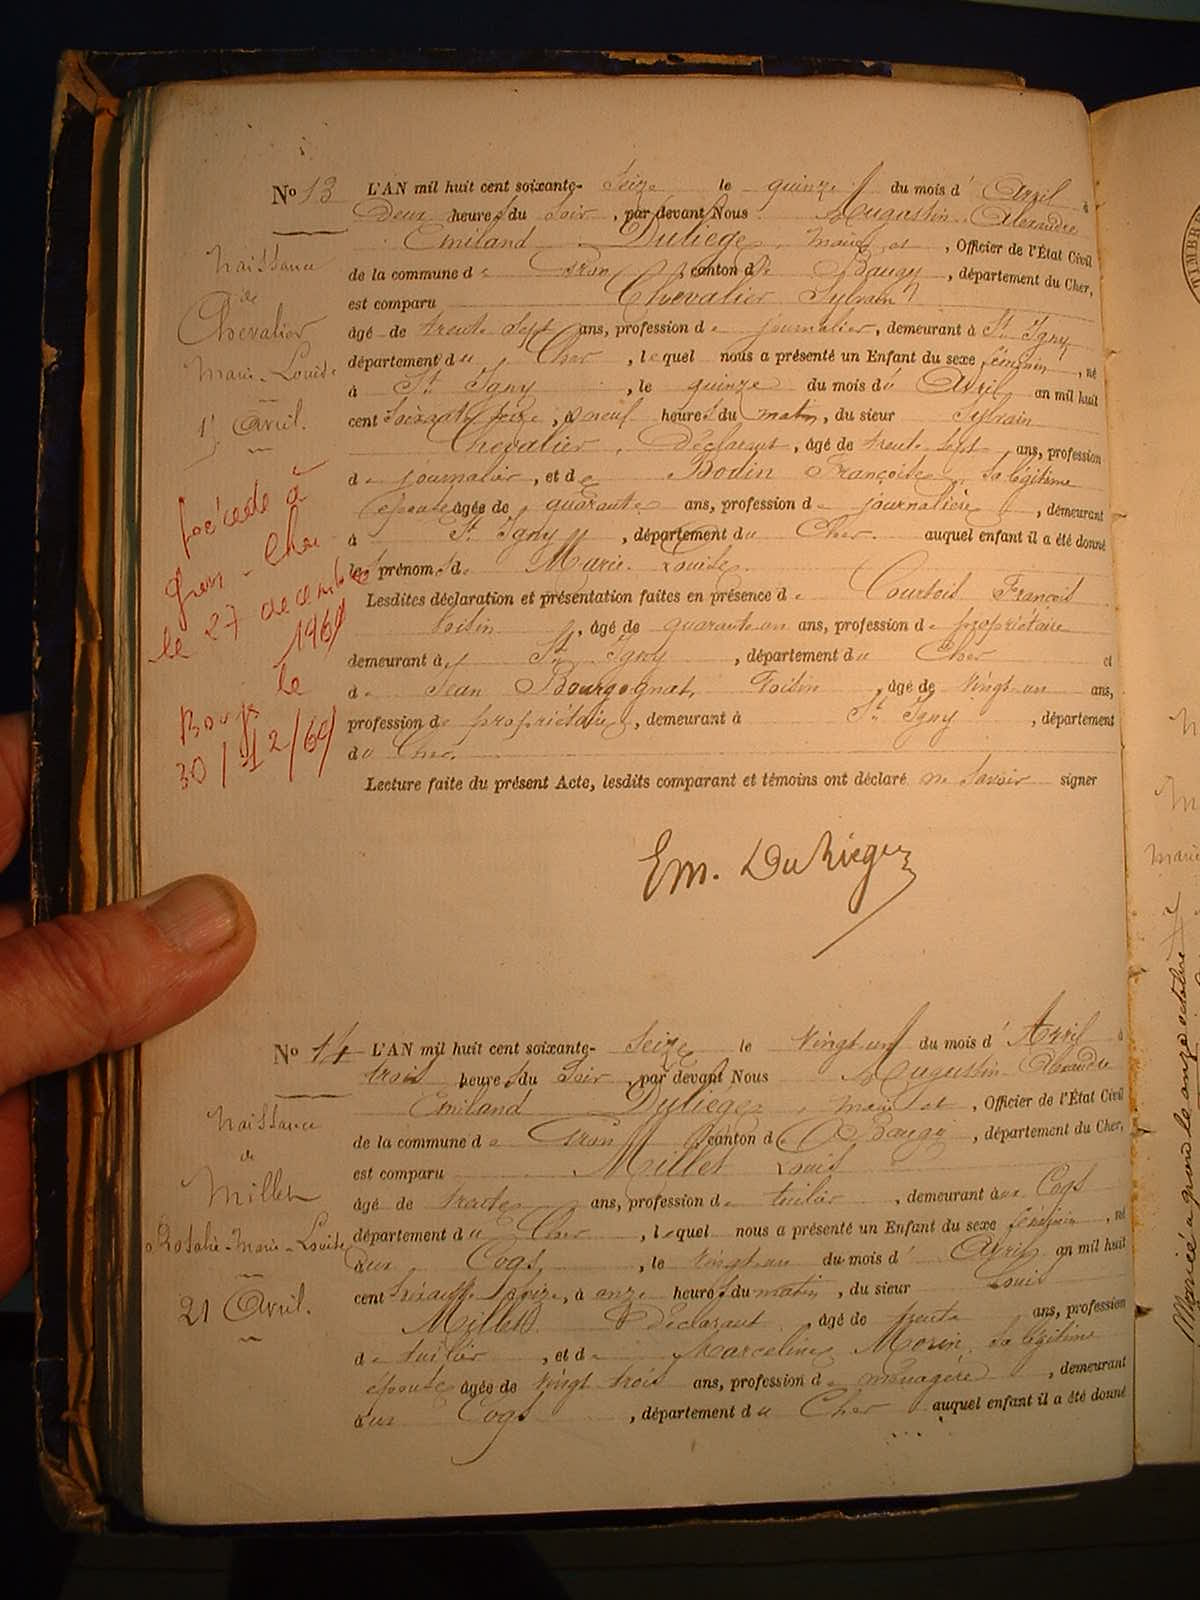 No 13
L'AN mil huit cent soixante- Seize le quinze du mois d' Avril à
Deux heures du Soir, par devant Nous Augustin Alexandre
Emiland Duliège, maire et, Officier de l'État Civil
de la commune de Gron canton de Baugy, département du Cher,
est comparu Chevalier Sylvain
âgé de trente sept ans, profession de journalier, demeurant à St Igny
département du Cher, lequel nous a présenté un Enfant du sexe féminin, né
à St Igny, le quinze du mois du Avril an mil huit
cent soixante seize, à neuf heures du matin, du sieur Sylvain
Chevalier, Déclarant, âgé de trente sept ans, profession
de journalier, et de Bodin Françoise, sa légitime
épouse âgée de quarante ans, profession de journalière, demeurant
à St Igny, département du Cher. auquel enfant il a été donné
les prénoms de Marie Louise.
Lesdites déclaration et présentation faites en présence de Courtois François
Voisin, âgé de quarante un ans, profession de propriétaire
demeurant à St Igny, département du Cher et
de Jean Bourgognat, Voisin, âgé de vingt un ans,
profession de propriétaire, demeurant à St Igny, département
du Cher.
Lecture faite du présent Acte, lesdits comparant et témoins ont déclaré ne Savoir signer
Naissance
de
Chevalier
Marie-Louise
15 Avril.
décédée à
Gron - Cher
le 27 décembre
1960
le
30/12/60
Em. Duliège
No 14
L'AN mil huit cent soixante- Seize le vingt un du mois d' Avril à
trois heures du Soir, par devant Nous Augustin Alexandre
Emiland Duliège, maire et, Officier de l'État Civil
de la commune de Gron canton de Baugy, département du Cher,
est comparu Millet Louis
âgé de trente ans, profession de tuilier, demeurant aux Cogs
département du Cher, lequel nous a présenté un Enfant du sexe féminin, né
aux Cogs, le vingt un du mois d' Avril an mil huit
cent soixante seize, à onze heures du matin, du sieur Louis
Millet Déclarant âgé de trente ans, profession
de tuilier, et de Marceline Morin, sa légitime
épouse âgée de vingt trois ans, profession de ménagère, demeurant
aux Cogs, département du Cher auquel enfant il a été donné
Naissance
de
Millet
Rosalie-Marie-Louise
21 Avril.